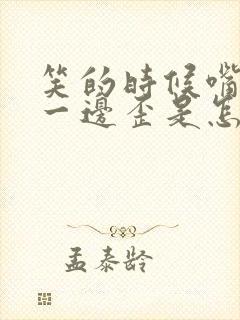 笑的時候嘴
一邊歪是怎
孟泰龄